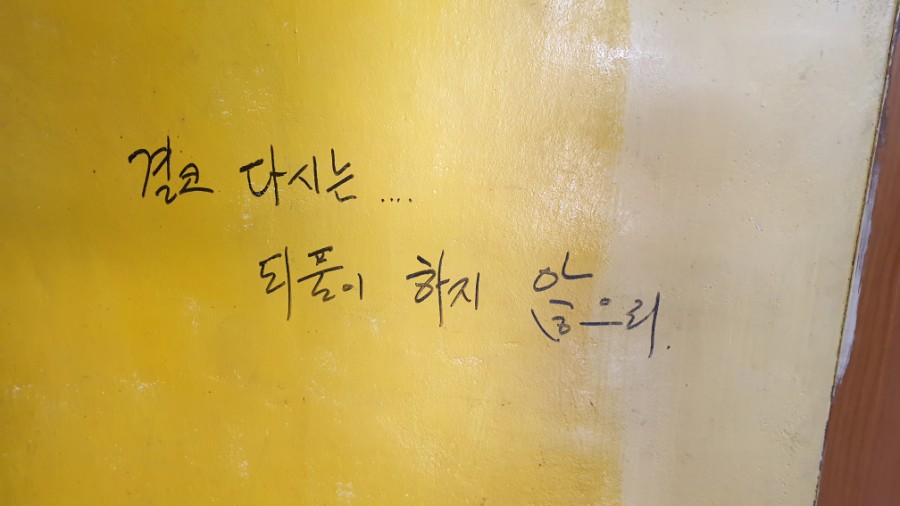 결코 다시는....
되풀이 하지 않으리.